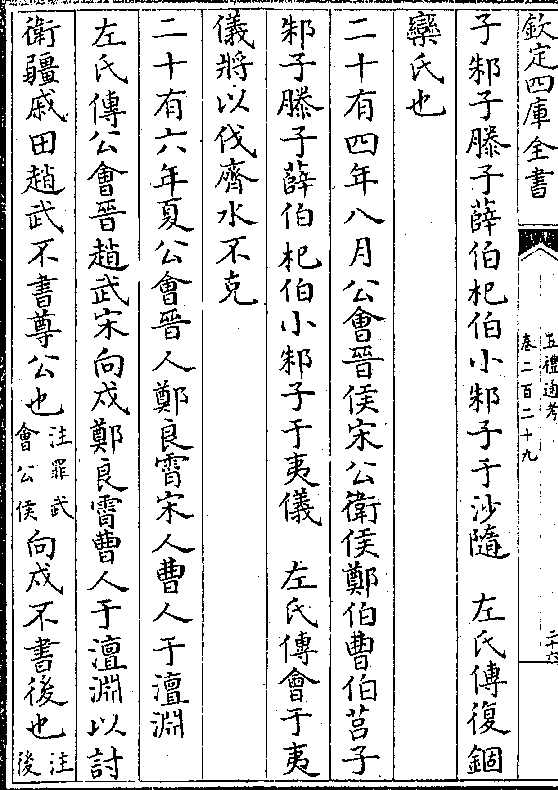 欽定四庫全書
五禮通考
卷二百二十九
二十六
子邾子滕子薛伯杞伯小邾子于沙隨　左氏傳復錮
欒氏也
二十有四年八月公會晉侯宋公衛侯鄭伯曹伯莒子
邾子滕子薛伯杞伯小邾子于夷儀　左氏傳會于夷
儀將以伐齊水不克
二十有六年夏公會晉人鄭良霄宋人曹人于澶淵
左氏傳公會晉趙武宋向戌鄭良霄曹人于澶淵以討
衛疆戚田趙武不書尊公也注罪武會公侯向戌不書後也注後